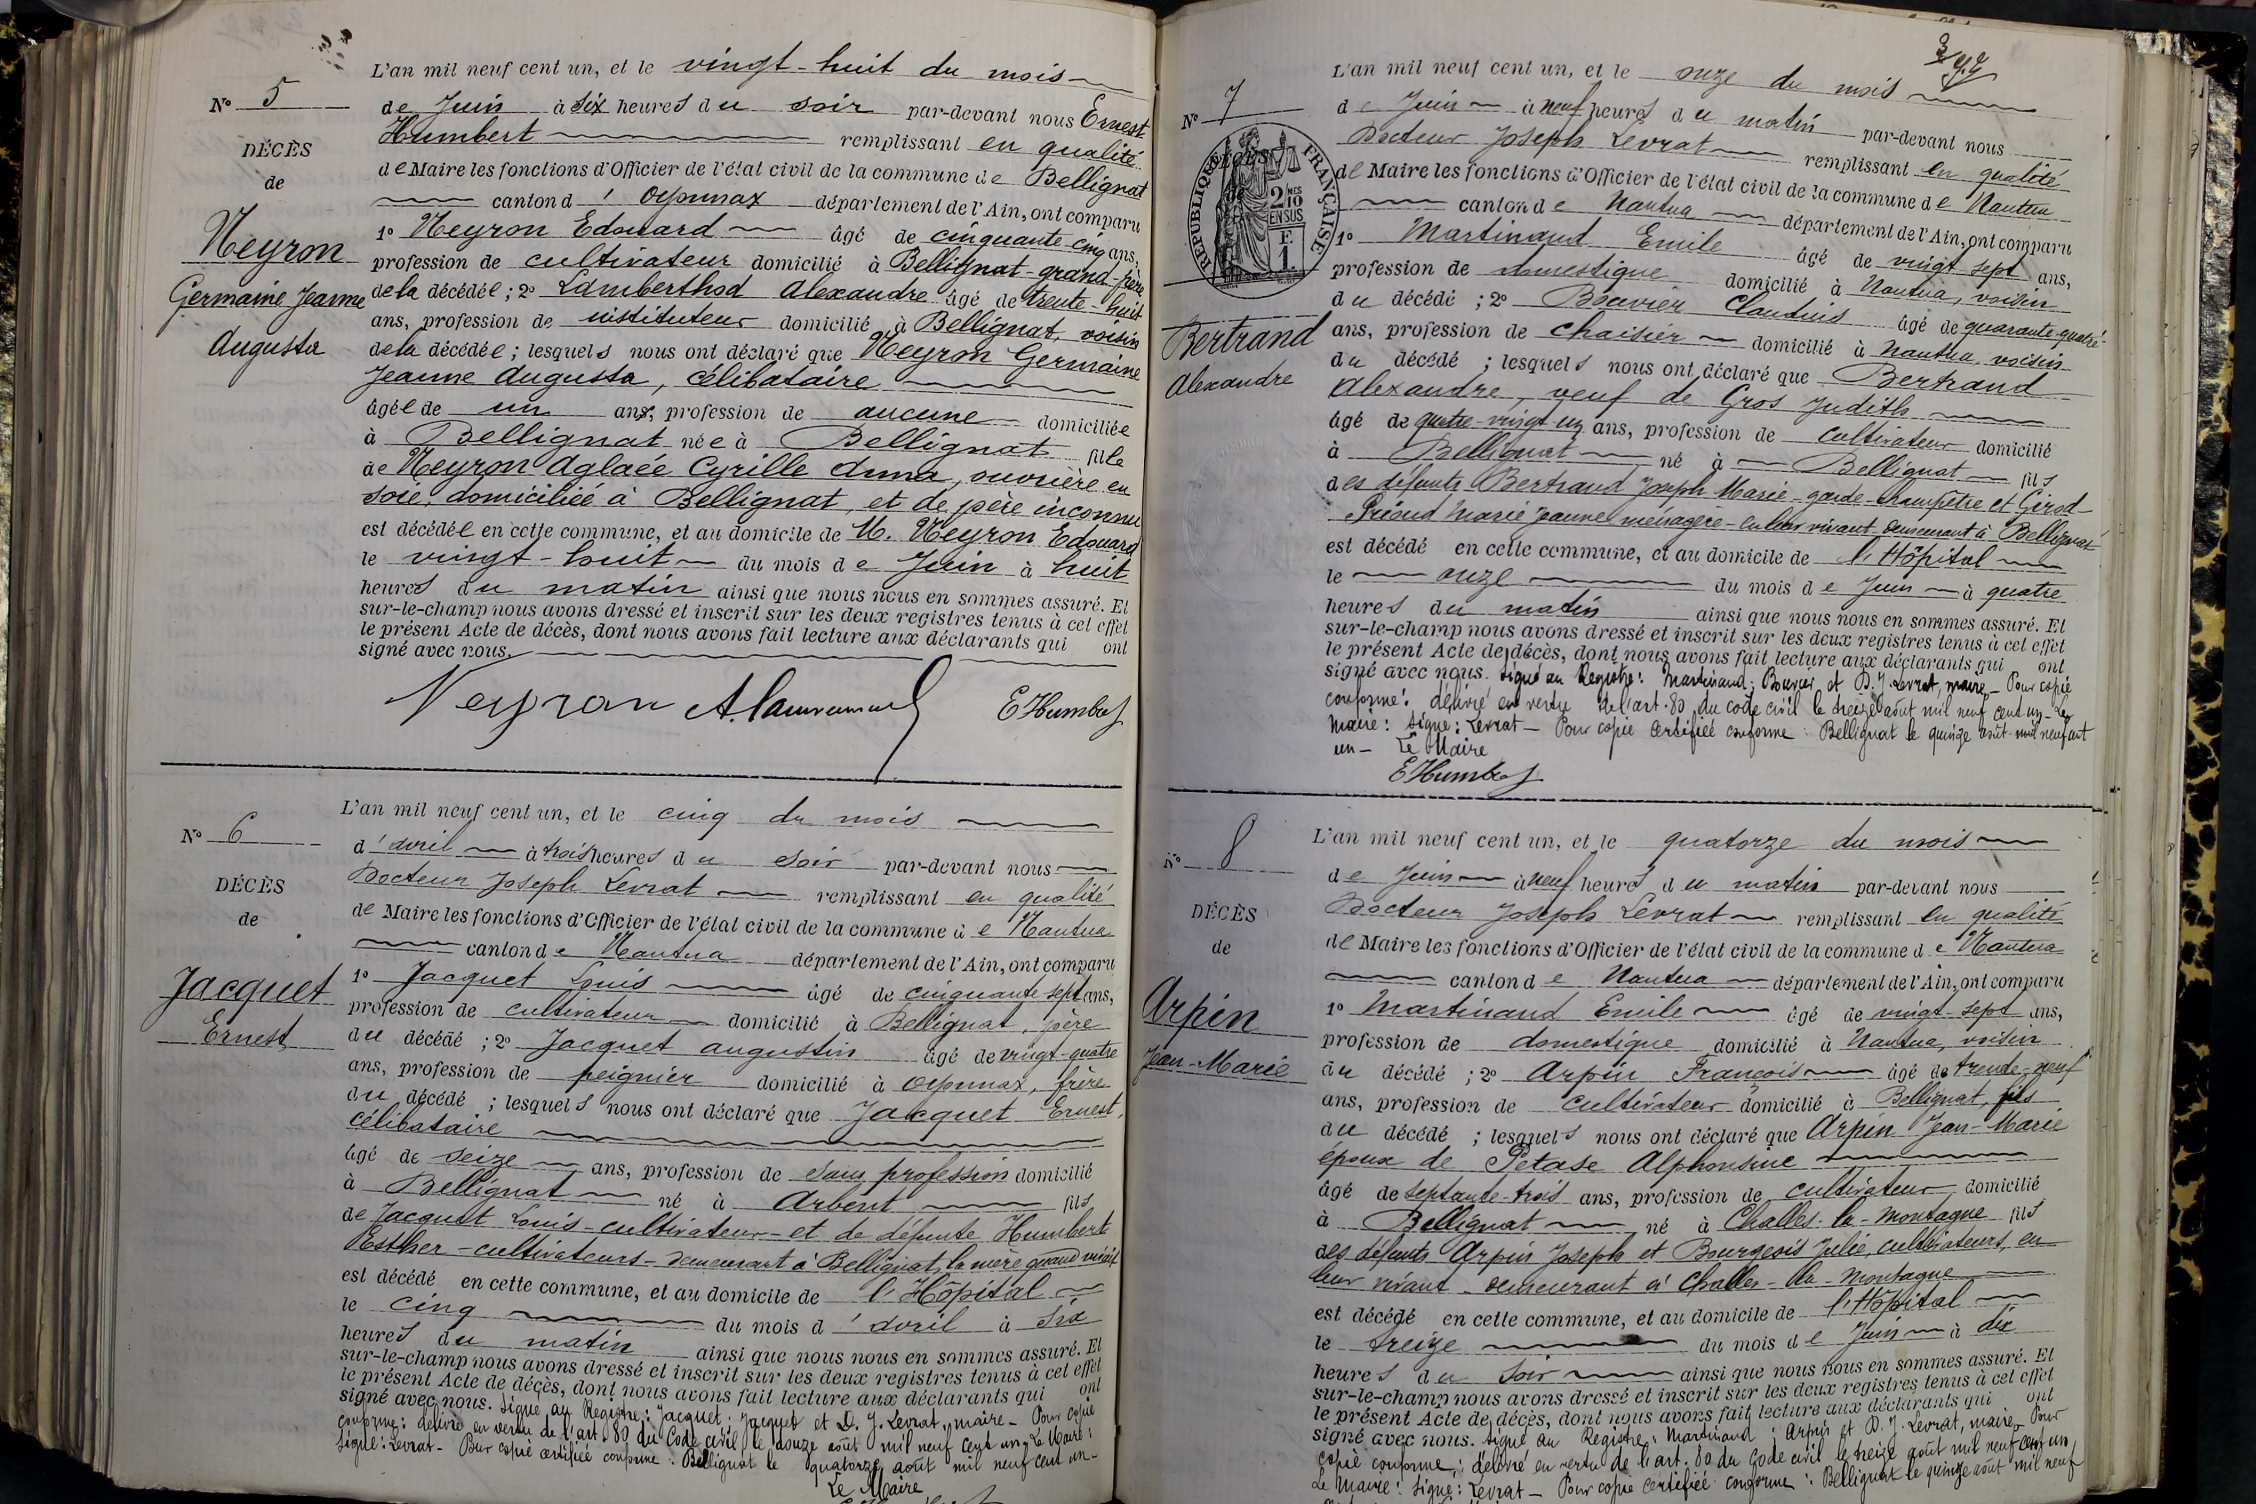 L'an mil neuf cent un, et le vingt-huit du mois
N° 5
de Juin à six heures du soir par-devant nous Ernest
Humbert remplissant en qualité
DÉCÈS
de Maire les fonctions d'Officier de l'état civil de la commune de Bellignat
de
canton d'Oyonnax département de l'Ain, ont comparu
1° Neyron Edouard âgé de cinquante-cinq ans,
Neyron
profession de cultivateur domicilié à Bellignat-grand-père
Germaine Jeanne
de la décédée ; 2° Lamberthod Alexandre âgé de trente-huit
ans, profession de instituteur domicilié à Bellignat, voisin
Augusta
de la décédée ; lesquels nous ont déclaré que Neyron Germaine
Jeanne Augusta, célibataire
âgée de un ans, profession de aucune domiciliée
à Bellignat née à Bellignat fille
de Neyron Aglaée Cyrille Anna, ouvrière en
soie, domiciliée à Bellignat, et de père inconnu
est décédée en cette commune, et au domicile de M. Neyron Edouard
le vingt-huit du mois de Juin à huit
heures du matin ainsi que nous nous en sommes assuré. Et
sur-le-champ nous avons dressé et inscrit sur les deux registres tenus à cet effet
le présent Acte de décès, dont nous avons fait lecture aux déclarants qui ont
signé avec nous.
Neyron EHumbert
L'an mil neuf cent un, et le cinq du mois
N° 6
d'avril à trois heures du soir par-devant nous
Docteur Joseph Levrat remplissant en qualité
DÉCÈS
de Maire les fonctions d'Officier de l'état civil de la commune de Nantua
de
canton de Nantua département de l'Ain, ont comparu
1° Jacquet Louis âgé de cinquante-sept ans,
Jacquet
profession de cultivateur domicilié à Bellignat, père
Ernest
du décédé ; 2° Jacquet augustin âgé de vingt-quatre
ans, profession de peignier domicilié à Oyonnax, frère
du décédé ; lesquels nous ont déclaré que Jacquet Ernest,
célibataire
âgé de seize ans, profession de sans profession domicilié
à Bellignat né à Arbent fils
de Jacquet Louis-cultivateur-et de défunte Humbert
Esther-cultivateurs-demeurant à Bellignat, la mère quand vivait
est décédé en cette commune, et au domicile de l'Hôpital
le cinq du mois d'avril à six
heures du matin ainsi que nous nous en sommes assuré. Et
sur-le-champ nous avons dressé et inscrit sur les deux registres tenus à cet effet
le présent Acte de décès, dont nous avons fait lecture aux déclarants qui ont
signé avec nous. Signé au Registre : Jacquet ; Jacquet et D. J. Levrat, maire - Pour copie
conforme : délivré en vertu de l'art. 80 du Code civil le douze août mil neuf cent un - Le Maire :
signé : Levrat - Pour copie certifiée conforme : Bellignat le quatorze août mil neuf cent un -
Le Maire
L'an mil neuf cent un, et le onze du mois
N° 7
de Juin à neuf heures du matin par-devant nous
Docteur Joseph Levrat remplissant en qualité
DÉCÈS
RÉPUBLIQUE FRANÇAISE
2/10MES EN SUS
F. 1.
de Maire les fonctions d'Officier de l'état civil de la commune de Nantua
canton de Nantua département de l'Ain, ont comparu
1° Martinand Emile âgé de vingt sept ans,
profession de domestique domicilié à Nantua, voisin
du décédé ; 2° Bouvier Claudius âgé de quarante-quatre
Bertrand
ans, profession de chaisier domicilié à Nantua, voisin
Alexandre
du décédé ; lesquels nous ont déclaré que Bertrand
Alexandre, veuf de Gros Judith
âgé de quatre-vingt-un ans, profession de cultivateur domicilié
à Bellignat né à Bellignat fils
des défunts Bertrand Joseph Marie-garde-champêtre et Girod
Marie Jeanne ménagère-en leur vivant demeurant à Bellignat
est décédé en cette commune, et au domicile de l'Hôpital
le onze du mois de Juin à quatre
heures du matin ainsi que nous nous en sommes assuré. Et
sur-le-champ nous avons dressé et inscrit sur les deux registres tenus à cet effet
le présent Acte de décès, dont nous avons fait lecture aux déclarants qui ont
signé avec nous. Signé au Registre : Martinand ; Bouvier et D. J. Levrat, maire - Pour copie
conforme : délivré en vertu de l'art. 80 du code civil le treize août mil neuf cent un - Le
Maire : signé : Levrat - Pour copie certifiée conforme : Bellignat le quinze août mil neuf cent
un - Le Maire
EHumbert
L'an mil neuf cent un, et le quatorze du mois
N° 8
de Juin à neuf heures du matin par-devant nous
Docteur Joseph Levrat remplissant en qualité
DÉCÈS
de Maire les fonctions d'Officier de l'état civil de la commune de Nantua
de
canton de Nantua département de l'Ain, ont comparu
1° Martinand Emile âgé de vingt-sept ans,
Arpin
profession de domestique domicilié à Nantua, voisin
Jean-Marie
du décédé ; 2° Arpin François âgé de trente-neuf
ans, profession de cultivateur domicilié à Bellignat, fils
du décédé ; lesquels nous ont déclaré que Arpin Jean-Marie
époux de Petase Alphonsine
âgé de septante-trois ans, profession de cultivateur domicilié
à Bellignat né à Challes-la-Montagne fils
des défunts Arpin Joseph et Bourgeois Julie, cultivateurs, en
leur vivant-demeurant à Challes-la-Montagne
est décédé en cette commune, et au domicile de l'Hôpital
le treize du mois de Juin à dix
heures du soir ainsi que nous nous en sommes assuré. Et
sur-le-champ nous avons dressé et inscrit sur les deux registres tenus à cet effet
le présent Acte de décès, dont nous avons fait lecture aux déclarants qui ont
signé avec nous. Signé au Registre : Martinand ; Arpin et D. J. Levrat, maire - Pour
copie conforme : délivré en vertu de l'art. 80 du Code civil le treize août mil neuf cent un
Le Maire : signé : Levrat - Pour copie certifiée conforme : Bellignat le quinze août mil neuf